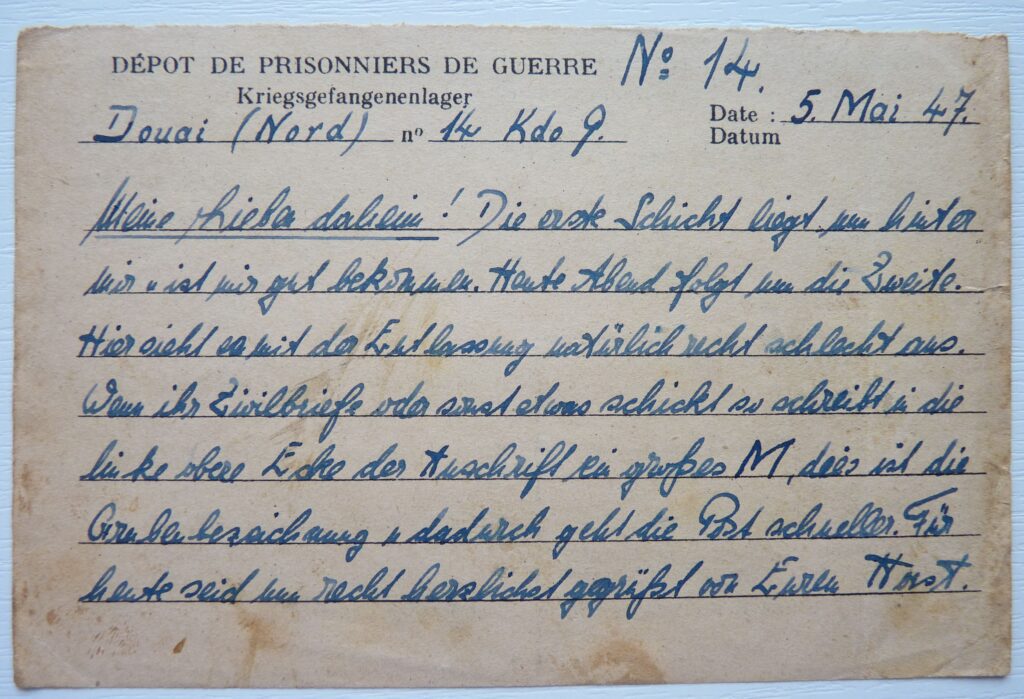 DÉPOT DE PRISONNIERS DE GUERRE No 14.
Kriegsgefangenenlager
Douai (Nord) no 14 Kdo 9. Date : 5. Mai 47.
Datum
Meine Lieben daheim! Die erste Schicht liegt nun hinter
mir u ist mir gut bekommen. Heute Abend folgt nun die Zweite.
Hier sieht es mit der Entlassung natürlich recht schlecht aus.
Wenn ihr Zivilbriefe oder sonst etwas schickt so schreibt in die
linke obere Ecke der Anschrift ein großes M, dies ist die
Grubenbezeichnung u dadurch geht die Post schneller. Für
heute seid nun recht herzlichst gegrüßt von Euren Horst.